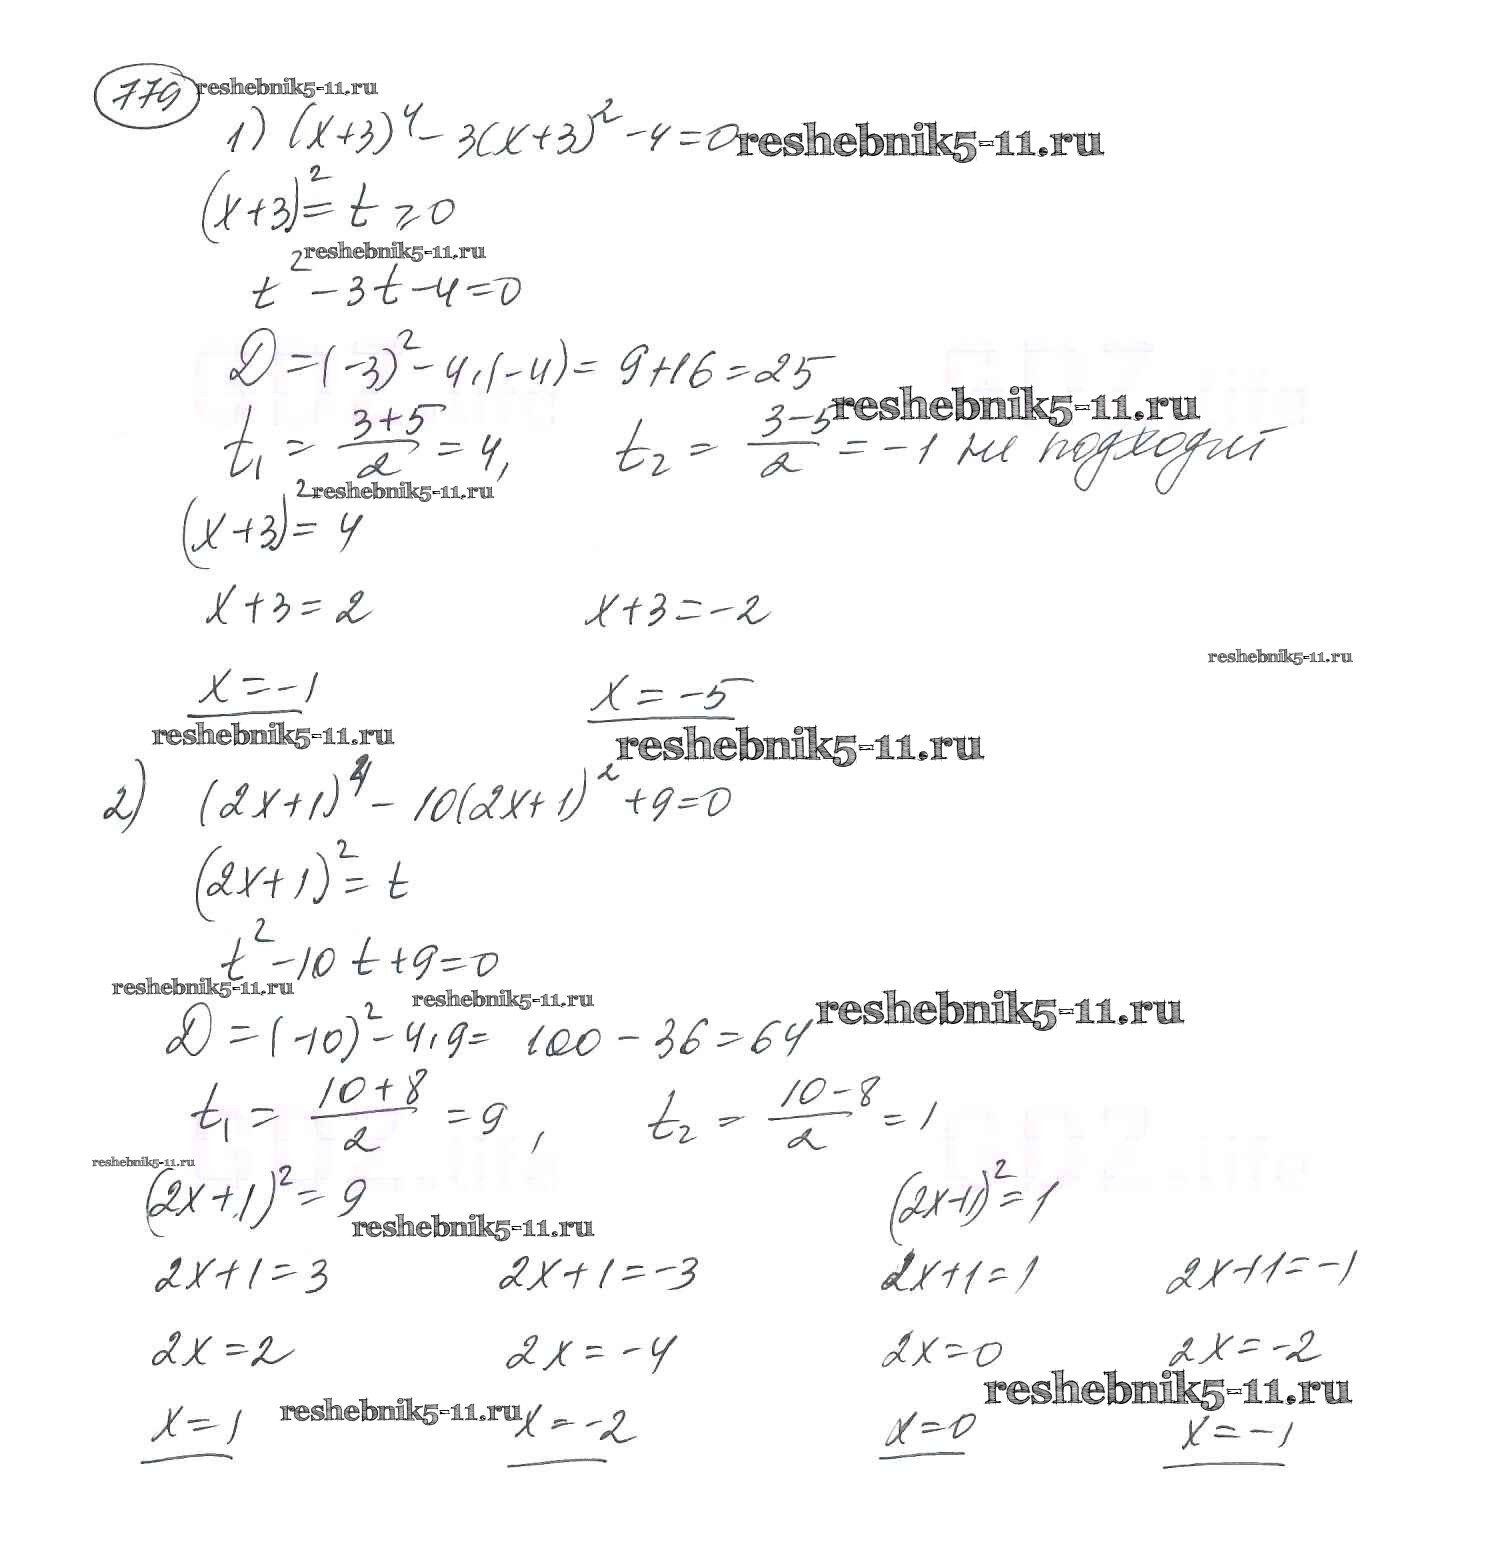 779 reshebnik5-11.ru
1) (x+3)⁴ - 3(x+3)² - 4 = 0 reshebnik5-11.ru
(x+3)² = t ≥ 0
reshebnik5-11.ru
t² - 3t - 4 = 0
D = (-3)² - 4·(-4) = 9 + 16 = 25
reshebnik5-11.ru
t₁ = (3+5)/2 = 4, t₂ = (3-5)/2 = -1 не подходит
reshebnik5-11.ru
(x+3)² = 4
x+3 = 2 x+3 = -2
reshebnik5-11.ru
x = -1 x = -5
reshebnik5-11.ru reshebnik5-11.ru
2) (2x+1)⁴ - 10(2x+1)² + 9 = 0
(2x+1)² = t
t² - 10t + 9 = 0
reshebnik5-11.ru reshebnik5-11.ru reshebnik5-11.ru
D = (-10)² - 4·9 = 100 - 36 = 64
t₁ = (10+8)/2 = 9, t₂ = (10-8)/2 = 1
reshebnik5-11.ru
(2x+1)² = 9 (2x+1)² = 1
reshebnik5-11.ru
2x+1 = 3 2x+1 = -3 2x+1 = 1 2x+1 = -1
2x = 2 2x = -4 2x = 0 2x = -2
reshebnik5-11.ru
x = 1 reshebnik5-11.ru x = -2 x = 0 x = -1